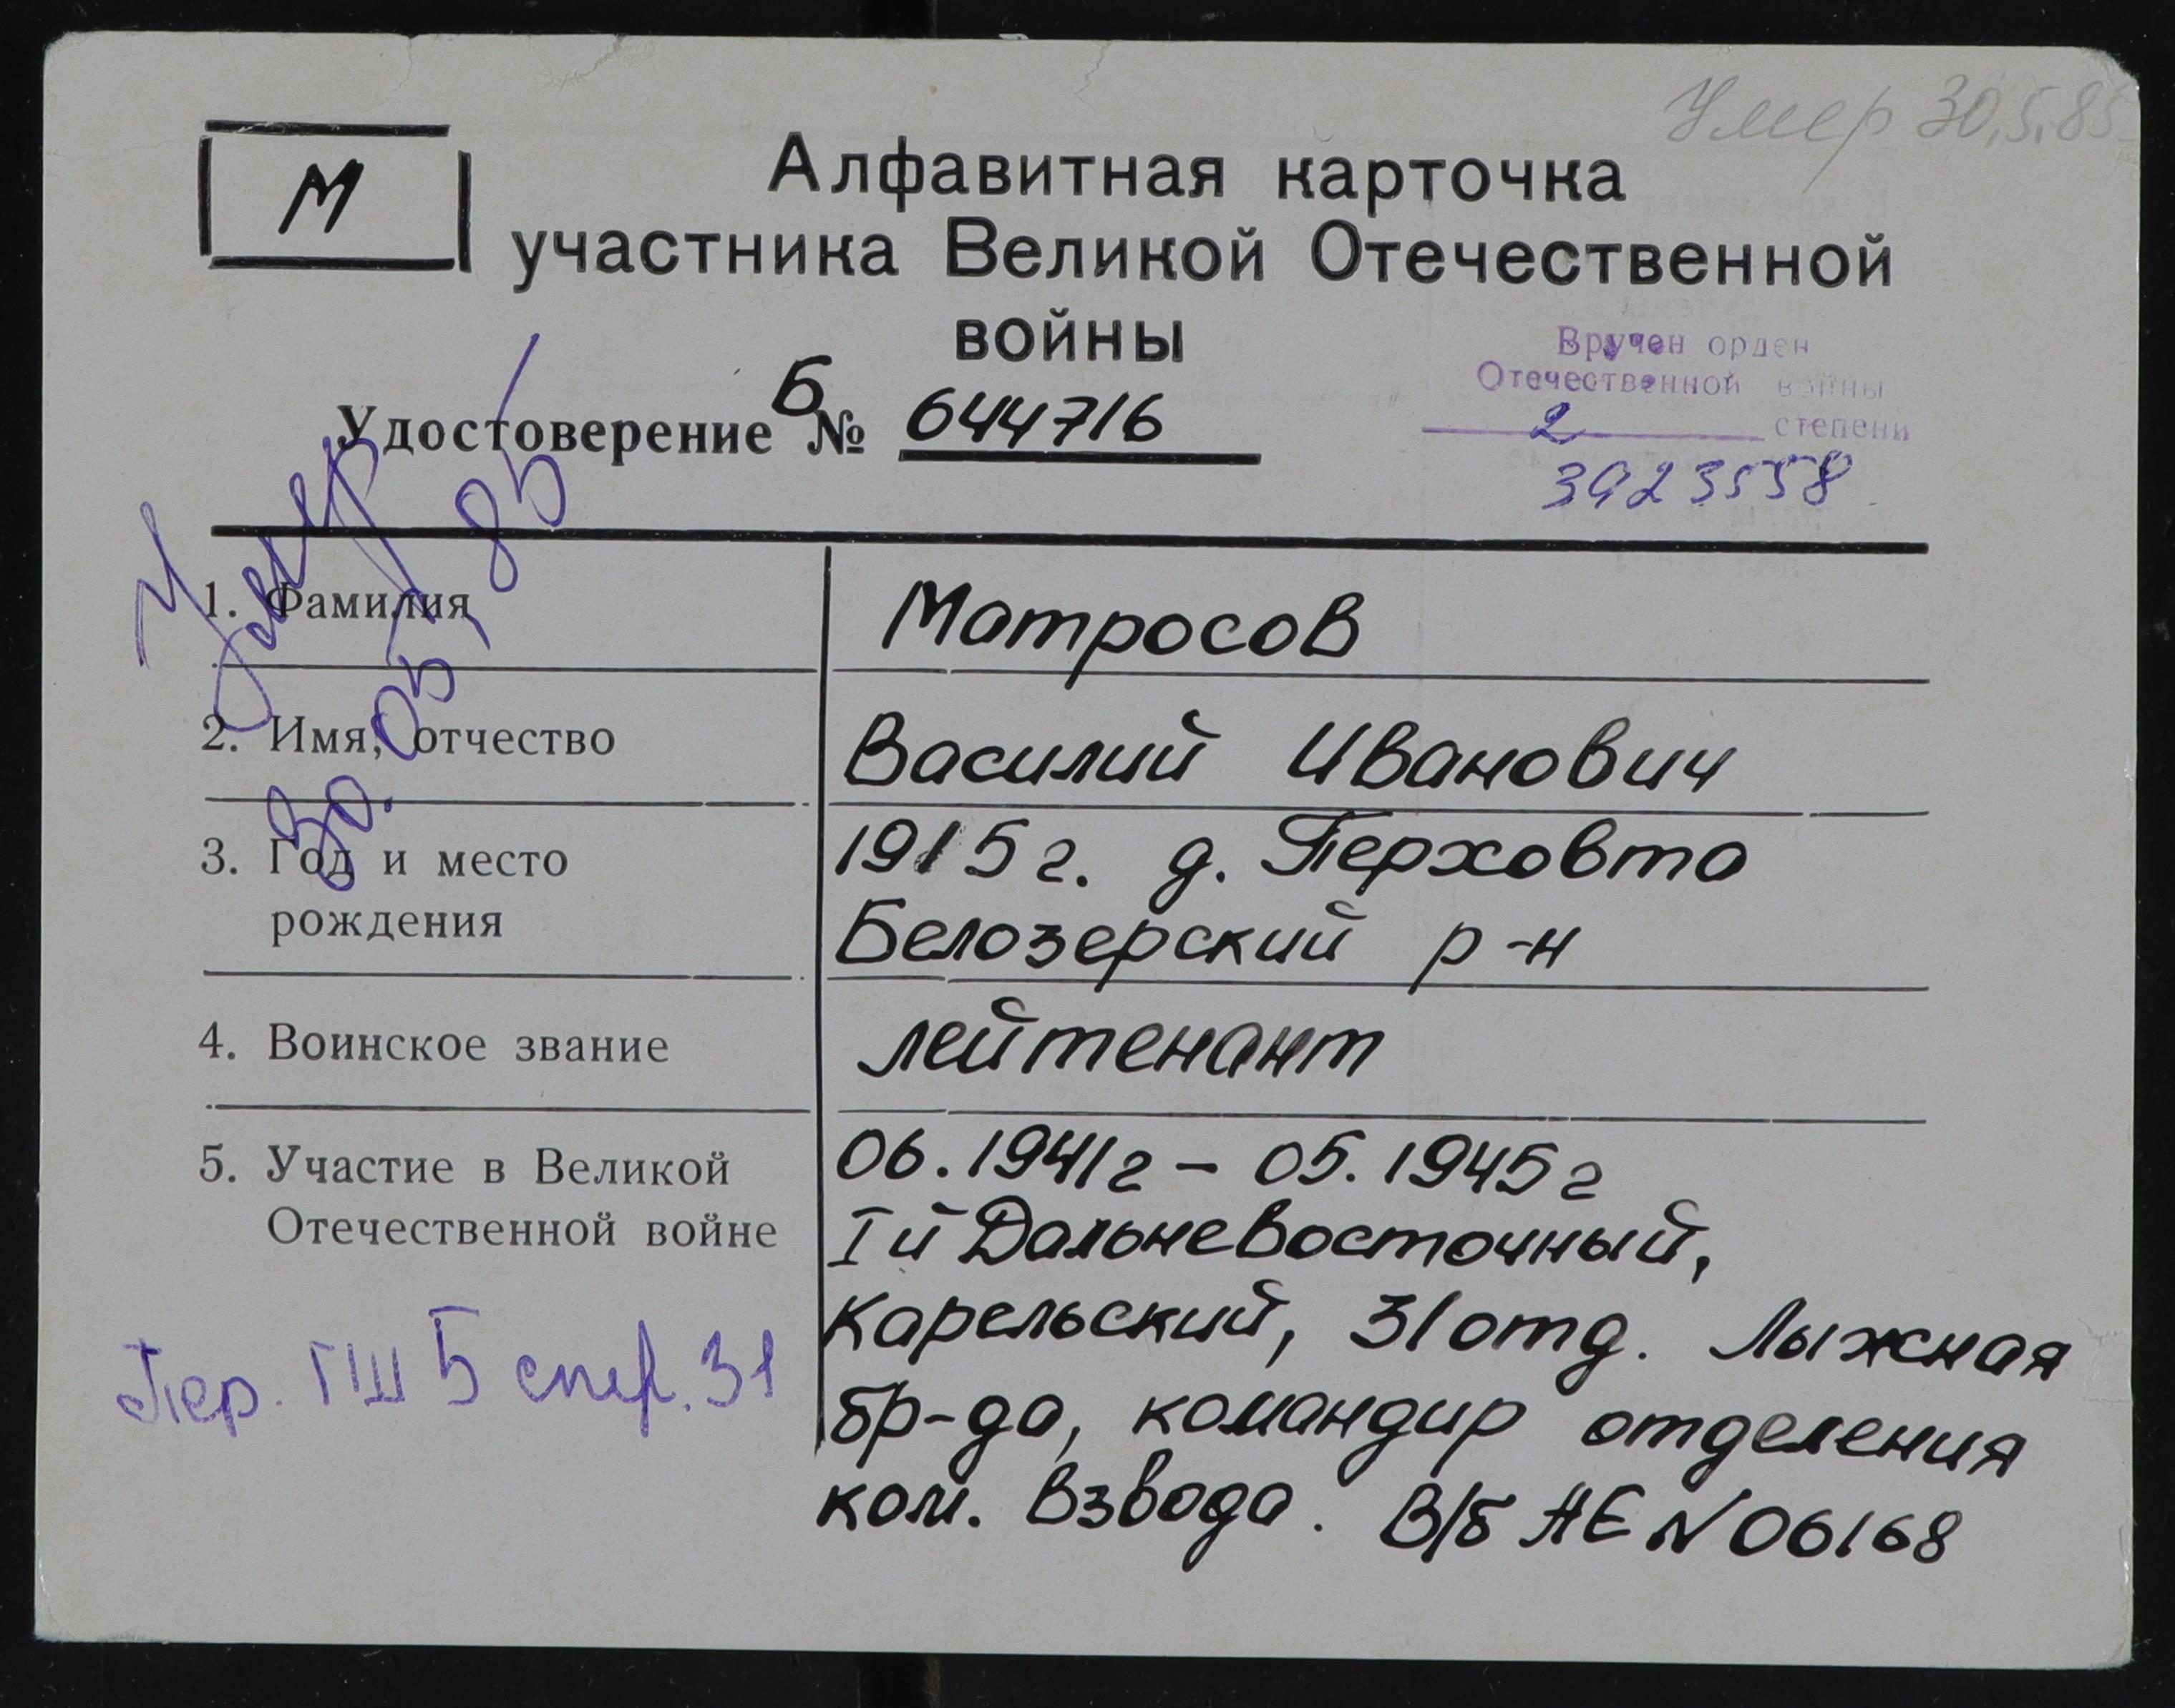 Умер 30.5.85
М
Алфавитная карточка
участника Великой Отечественной
войны
Вручен орден
Отечественной войны
2 степени
3923558
Удостоверение Б № 644716
Умер
30.05.85
1. Фамилия Матросов
2. Имя, отчество Василий Иванович
3. Год и место 1915 г. д. Перховта
рождения Белозерский р-н
4. Воинское звание лейтенант
5. Участие в Великой 06.1941г – 05.1945г
Отечественной войне Iй Дальневосточный,
Карельский, 31 отд. Лыжная
бр-да, командир отделения
ком. взвода. В/б АЕ N 06168
Пер. ГШ Б 31